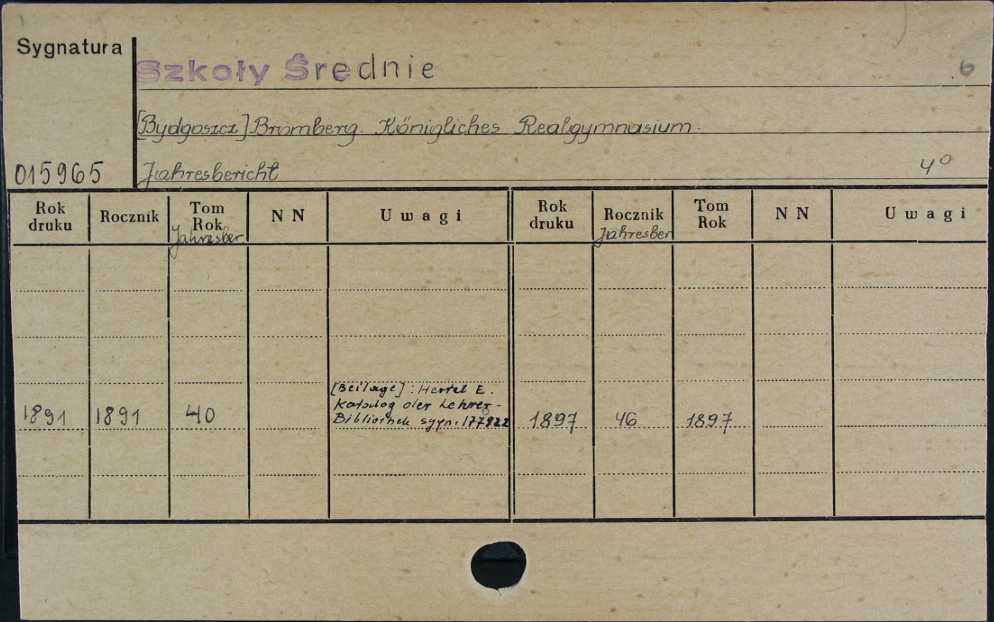 Sygnatura
Szkoły Średnie 6
[Bydgoszcz] Bromberg. Königliches Realgymnasium.
015965 Jahresbericht 4°
Rok druku Rocznik Tom Rok Jahresber NN Uwagi Rok druku Rocznik Jahresber Tom Rok NN Uwagi
[Beilage]: Hertel E.
Katalog der Lehrer-
1891 1891 40 Bibliothek sygn. 177822 1897 46 1897